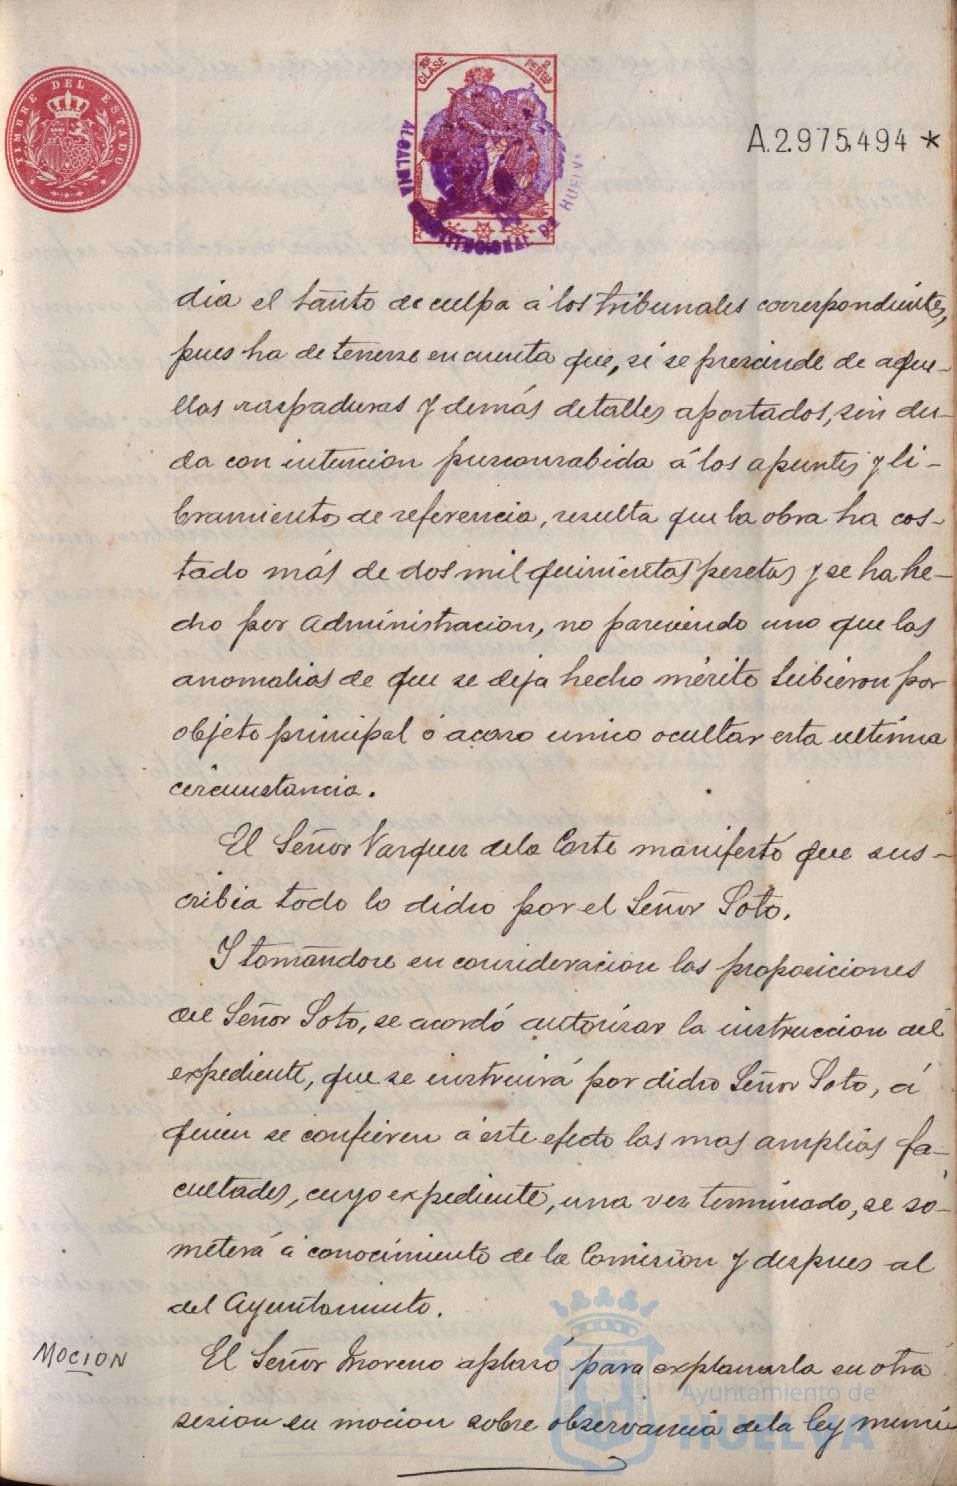 TIMBRE DEL ESTADO
10ª CLASE
2 PESETAS
ALCALDIA CONSTITUCIONAL DE HUELVA
A.2.975.494 *
dia el tánto de culpa á los tribunales correspondientes,
pues ha de tenerse en cuenta que, si se prescinde de aque-
llas raspaduras y demás detalles aportados, sin du-
da con intencion preconcebida á los apuntes y li-
bramientos de referencia, resulta que la obra ha cos-
tado más de dos mil quinientas pesetas y se ha he-
cho por administracion, no pareciendo sino que las
anomalias de que se deja hecho mérito tubieron por
objeto principal ó acaso unico ocultar esta ultima
circunstancia.
El Señor Vazquez de la Corte manifestó que sus-
cribia todo lo dicho por el Señor Soto.
Y tomándose en consideracion las proposiciones
del Señor Soto, se acordó autorizar la instruccion del
expediente, que se instruirá por dicho Señor Soto, á
quien se confieren á este efecto las mas amplias fa-
cultades, cuyo expediente, una vez terminado, se so-
meterá á conocimiento de la Comision y despues al
del Ayuntamiento.
MOCION
El Señor Moreno aplazó para explanarla en otra
sesion su mocion sobre observancia de la ley muni-
Ayuntamiento de
HUELVA